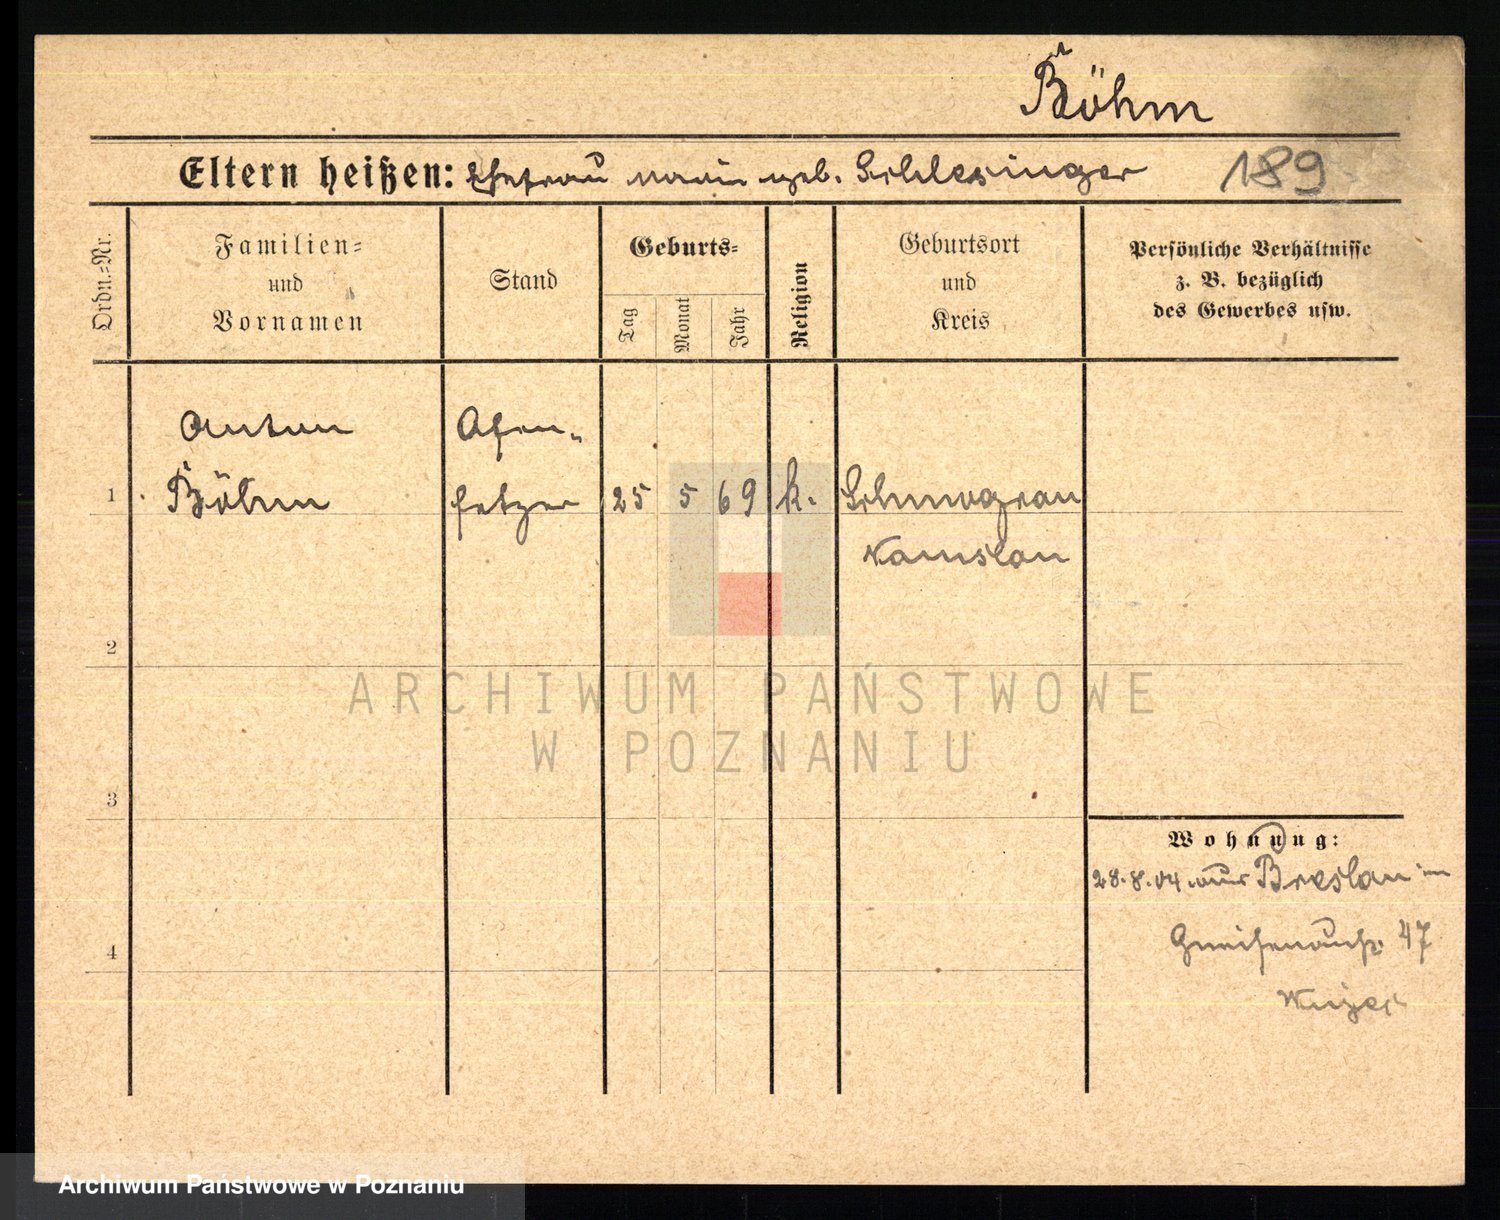 Böhm
Eltern heißen: Ehefrau Marie geb. Schlesinger 189
Ordn.-Nr.
Familien-
und
Vornamen
Stand
Geburts-
Tag
Monat
Jahr
Religion
Geburtsort
und
Kreis
Persönliche Verhältnisse
z. B. bezüglich
des Gewerbes usw.
Anton Ofen-
1 Böhm setzer 25 5 69 k. Schmograu
Namslau
2
3
4
Wohnung:
28.8.04 aus Breslau in
Gneisenaustr. 47
ARCHIWUM PAŃSTWOWE
W POZNANIU
Archiwum Państwowe w Poznaniu